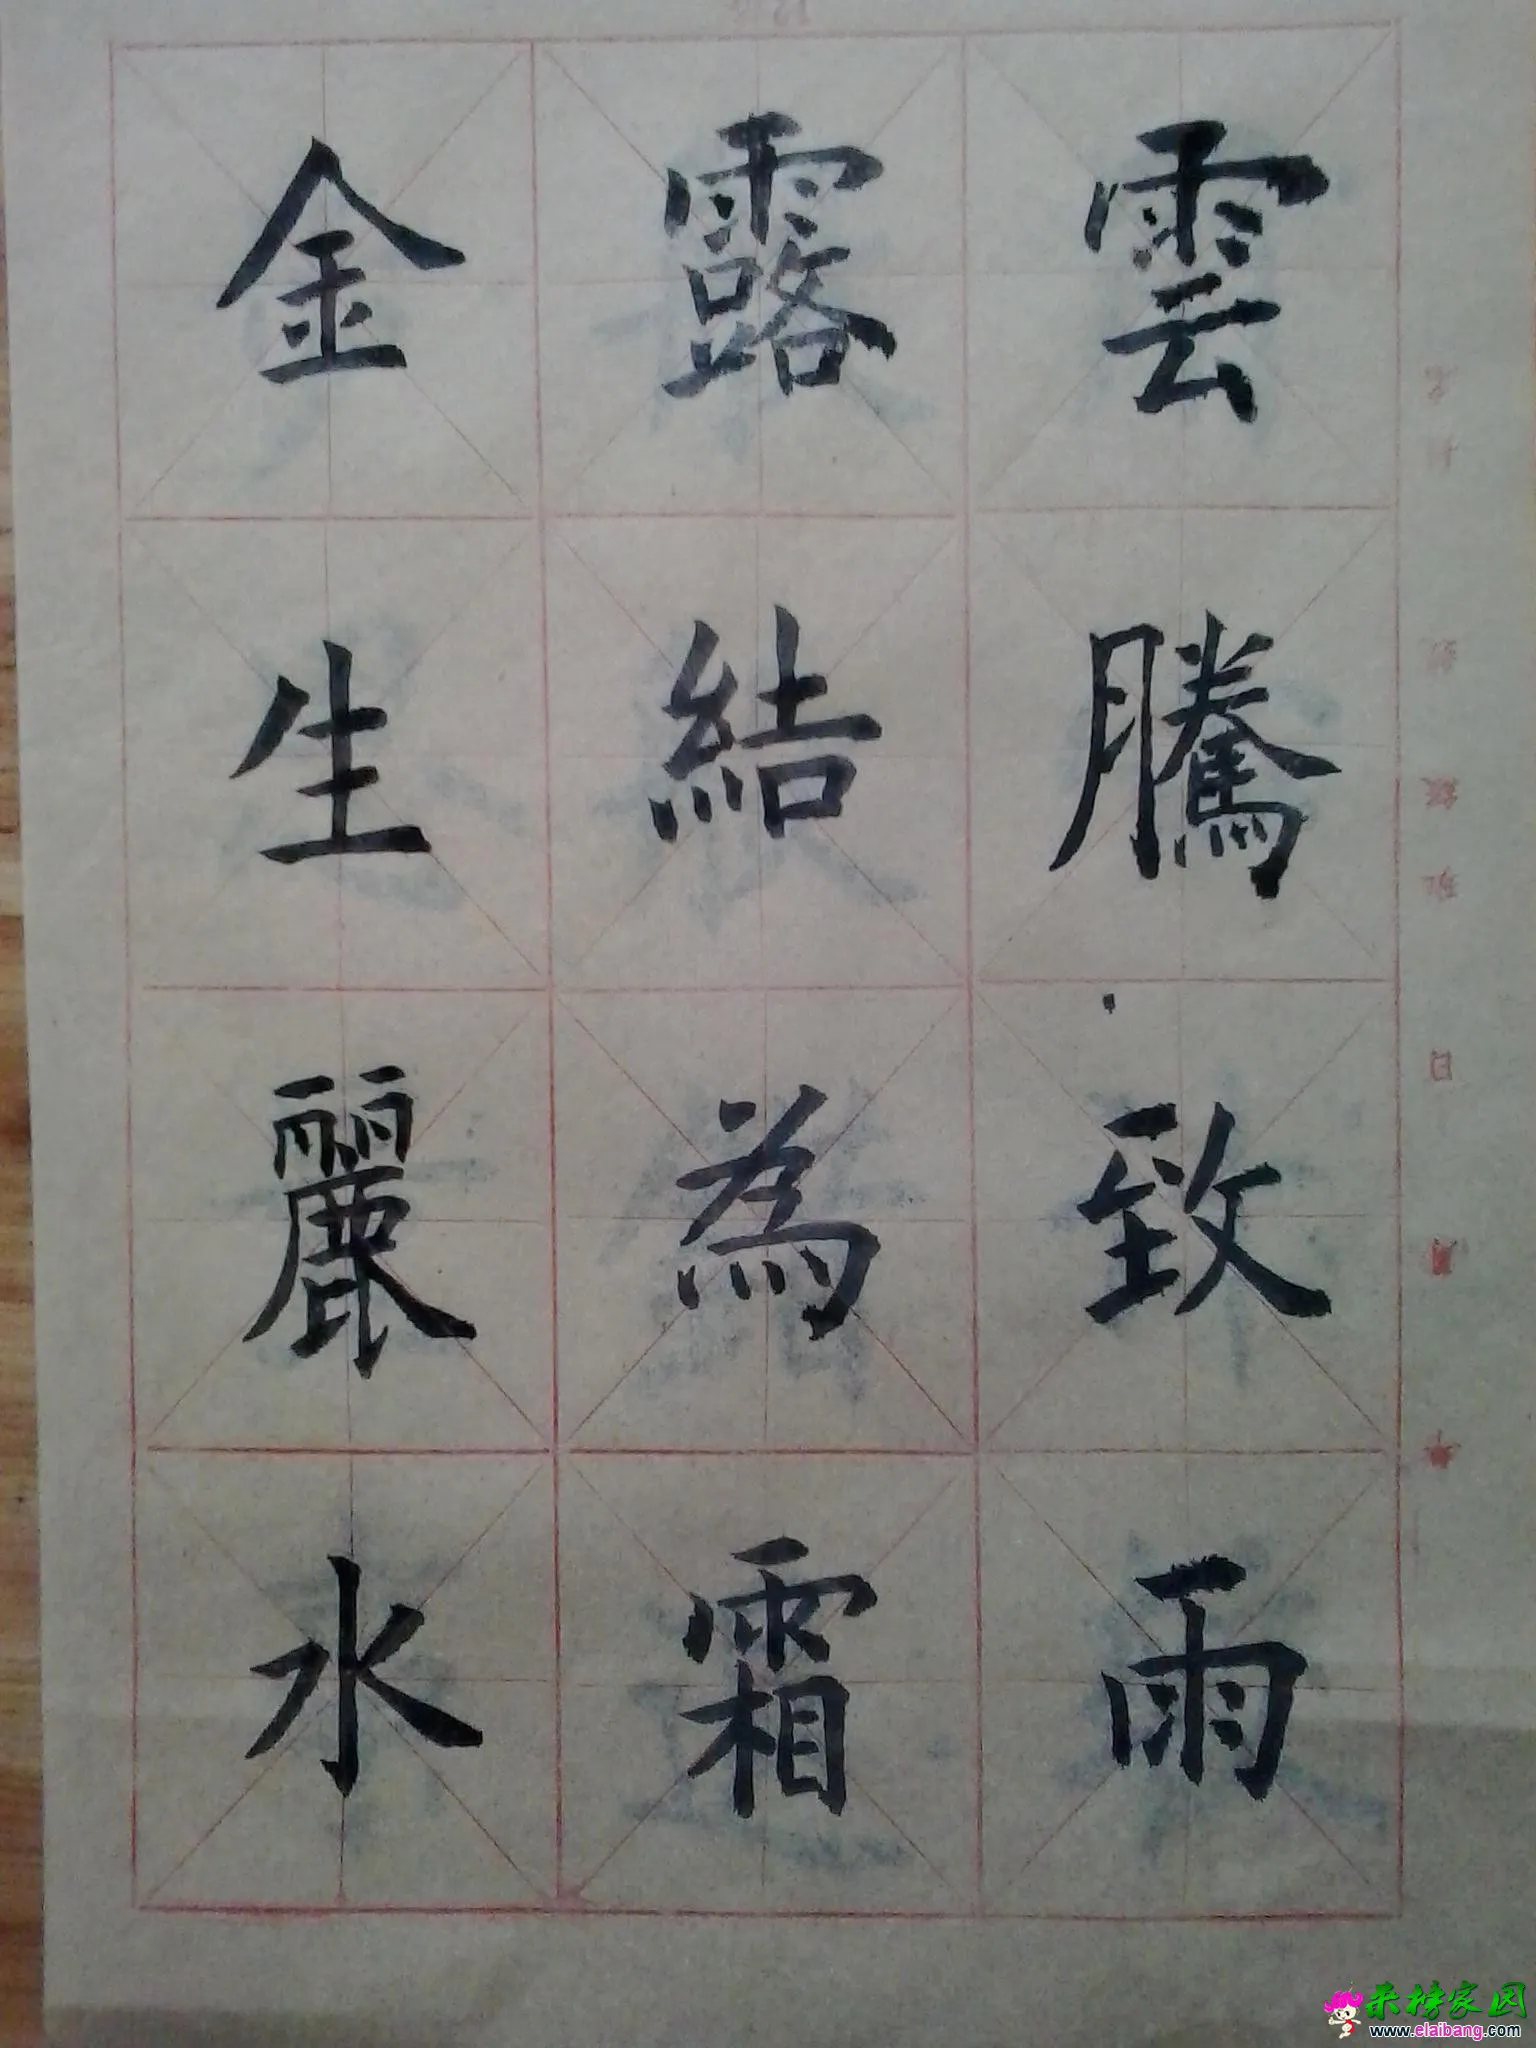 雲騰致雨
露結為霜
金生麗水
来榜家园
www.elaibang.com